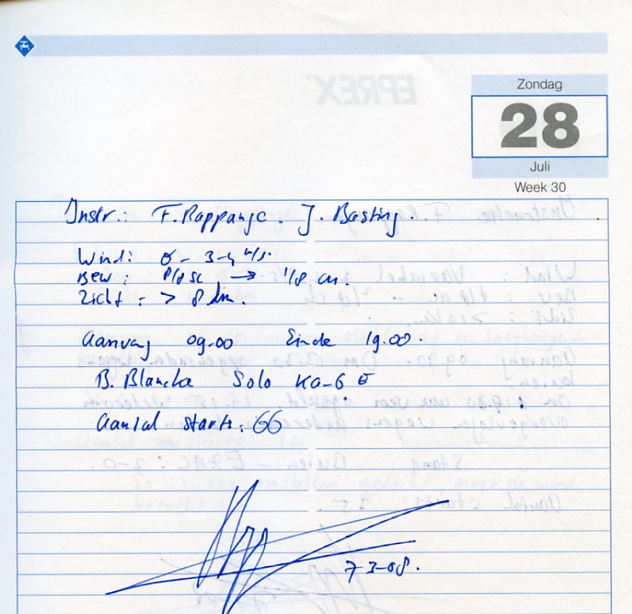 Zondag
28
Juli
Week 30
Instr.: F. Rappange. J. Basting.
Wind: 3-4 m/s.
Bew: 8/8 sc → 1/8 cu.
Zicht: > 8 km.
Aanvang 09.00 Einde 19.00.
B. Blancke Solo Ka-6 E
Aantal starts: 66
7-3-08.